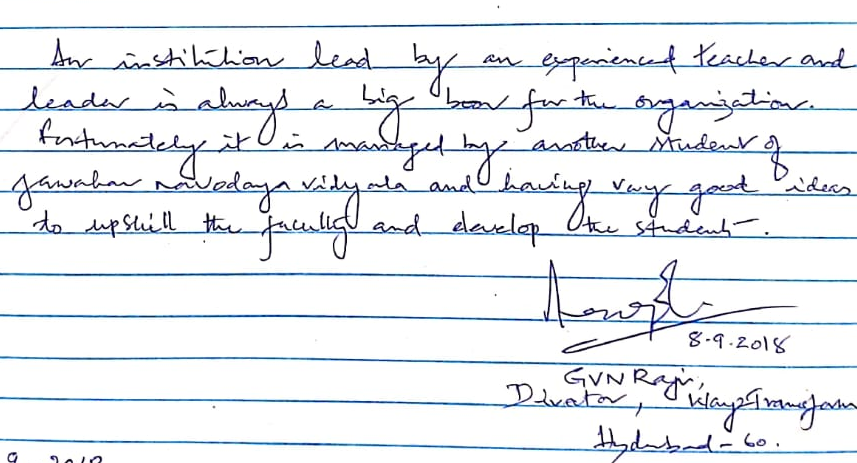 An institution lead by an experienced teacher and
leader is always a big boon for the organization.
Fortunately it is managed by another student of
Jawahar navodaya vidyala and having very good ideas
to upskill the faculty and develop the student.
8-9-2018
GVN Raju,
Director, Ways2Transform
Hyderabad - 60.